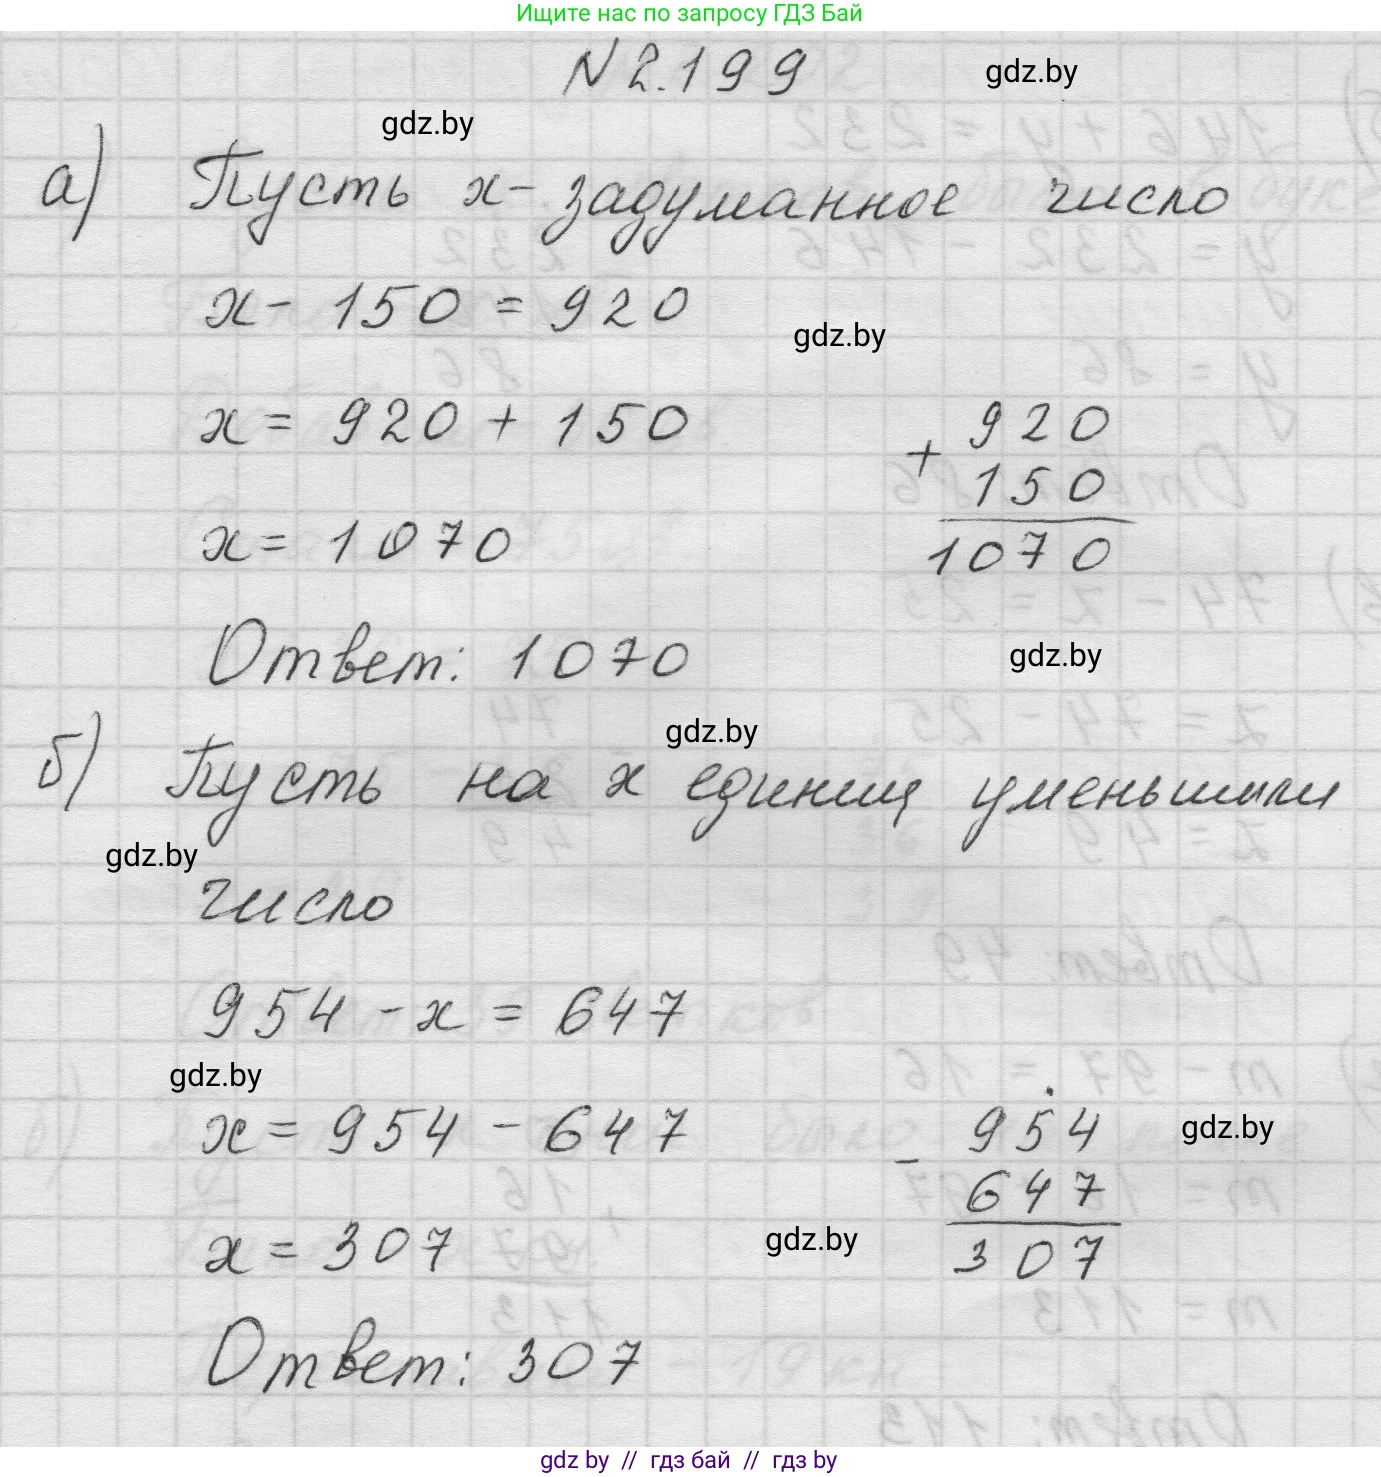 Ищите нас по запросу ГДЗ Бай
N 2.199
gdz.by
gdz.by
а) Пусть х - задуманное число
х - 150 = 920
gdz.by
х = 920 + 150
920
+
150
х = 1070
1070
Ответ: 1070
gdz.by
gdz.by
б) Пусть на х единиц уменьшили
gdz.by
число
954 - х = 647
gdz.by
х = 954 - 647
954
gdz.by
-
647
х = 307
gdz.by
307
Ответ: 307
gdz.by // гдз бай // гдз by